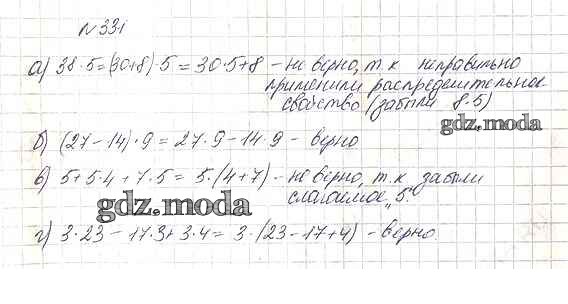 №331
а) 38·5=(30+8)·5=30·5+8 - не верно, т.к неправильно
применили распределительное
свойство (забыли 8·5)
gdz.moda
б) (27-14)·9=27·9-14·9 - верно
в) 5+5·4+7·5=5·(4+7) - не верно, т.к забыли
слагаемое „5"
gdz.moda
г) 3·23-17·3+3·4=3·(23-17+4) - верно.